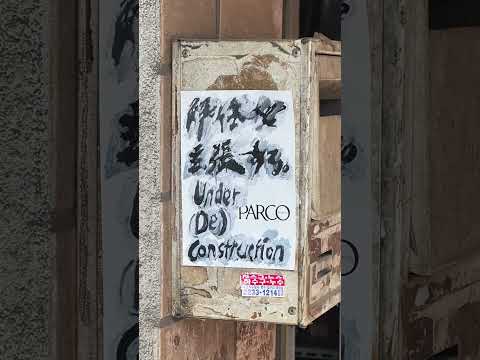 解体を
主張する。
Under
(De)
Construction
PARCO
2833-1214